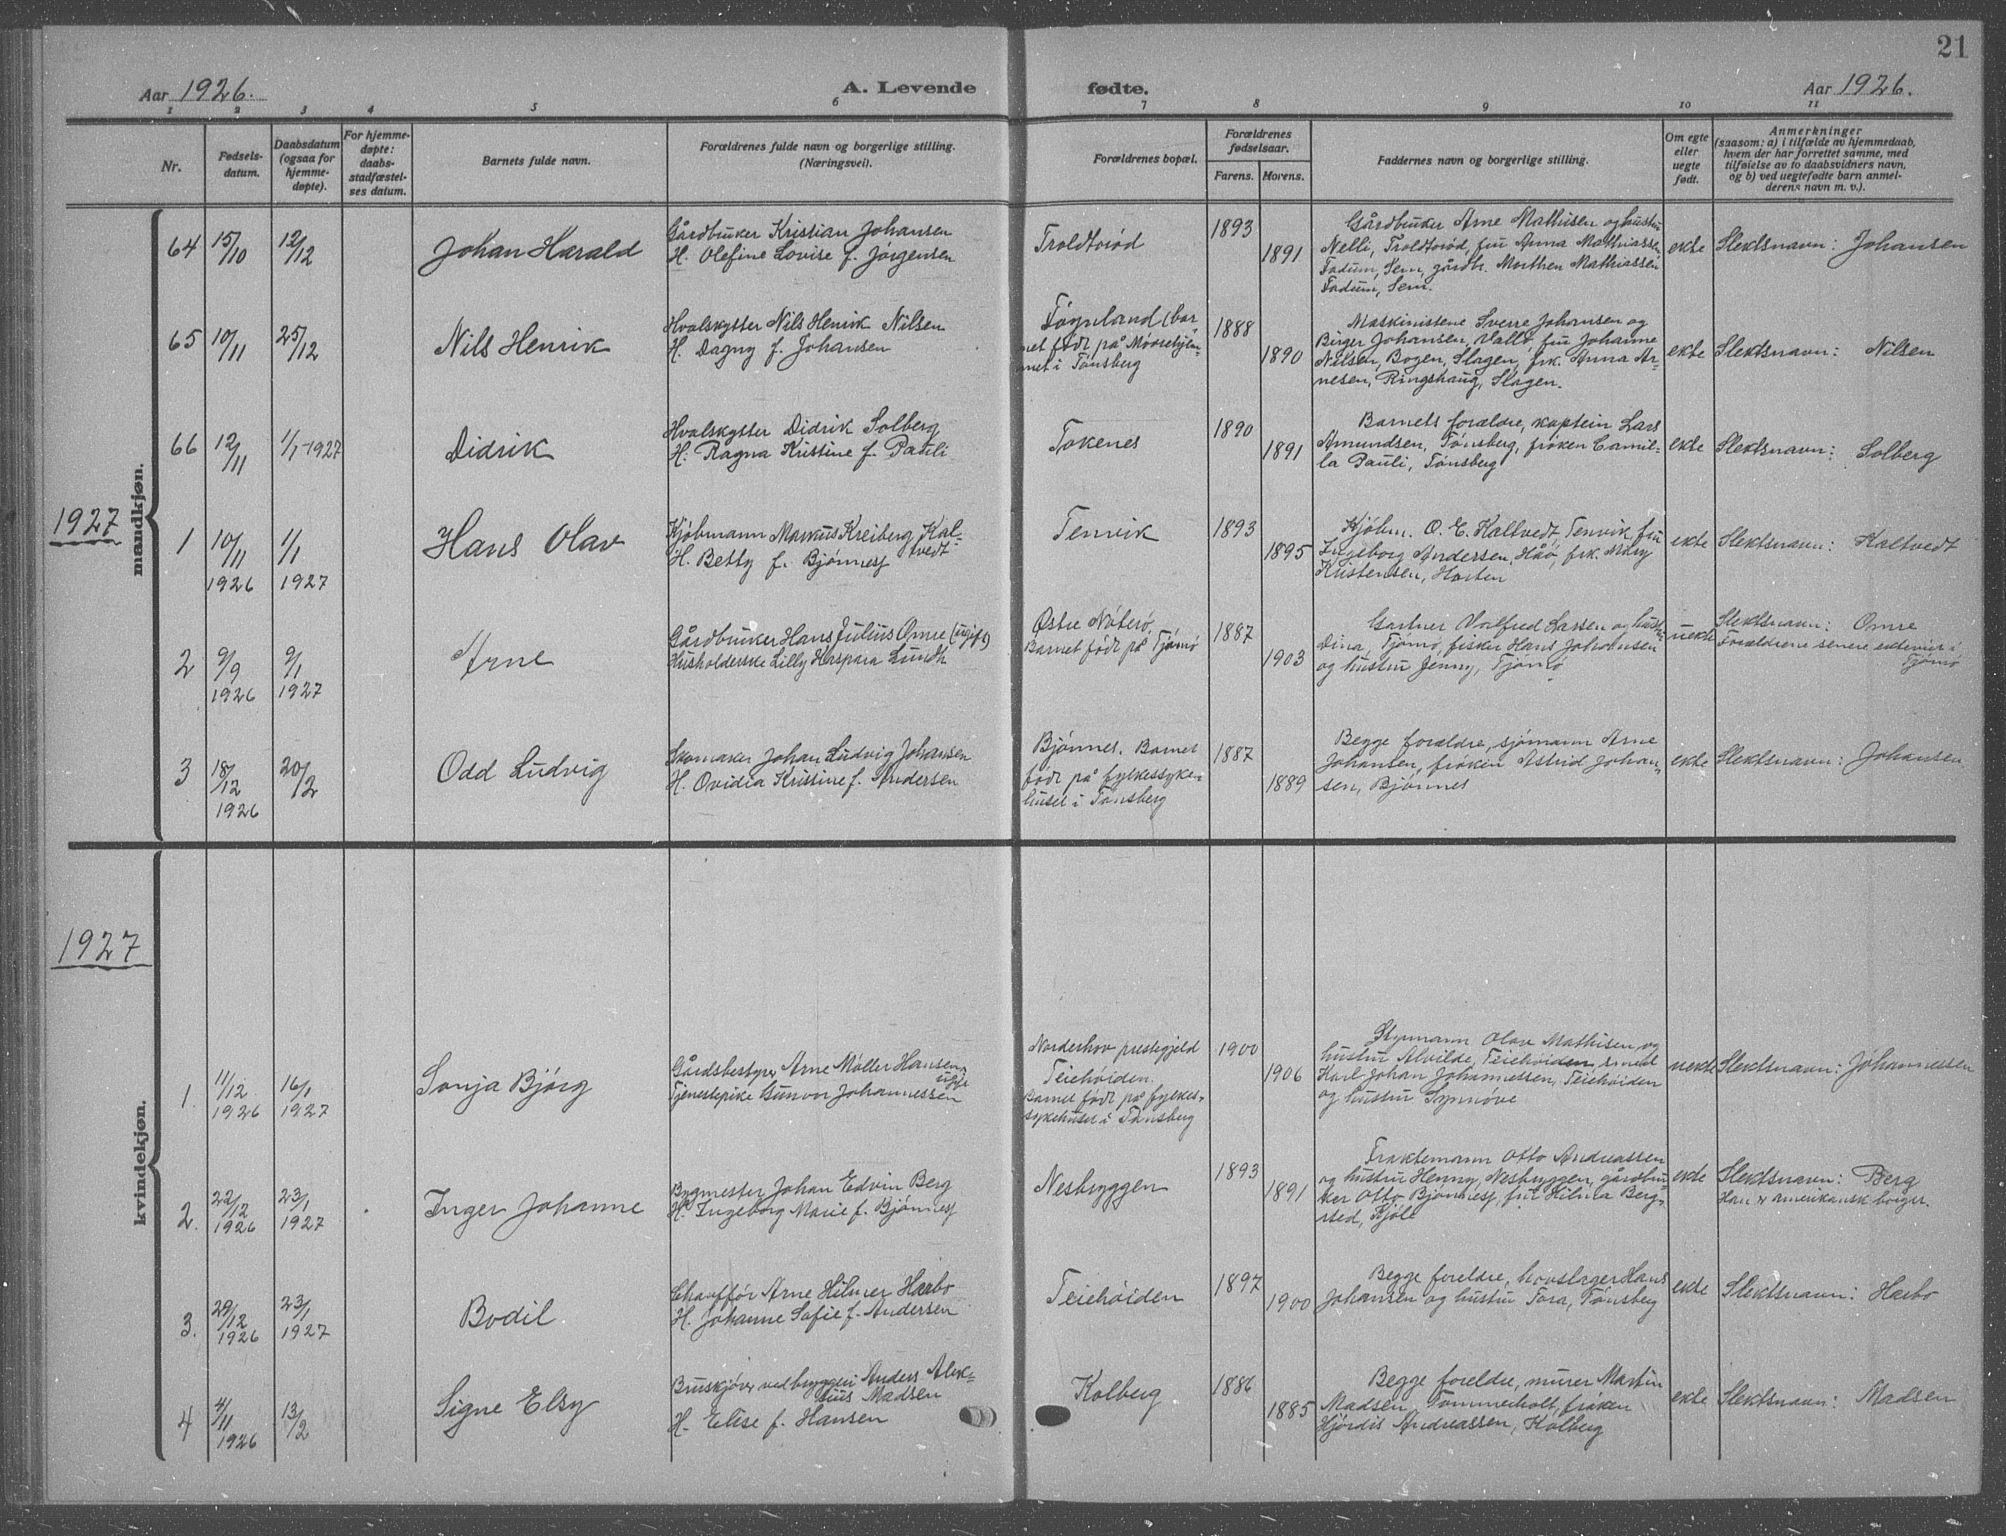 21
Aar 1926.
A. Levende
fødte.
Aar 1926.
1 2 3 4 5 6 7 8 9 10 11
Nr.
Fødsels-
datum.
Daabsdatum
(ogsaa for
hjemme-
døpte).
For hjemme-
døpte:
daabs-
stadfæstel-
ses datum.
Barnets fulde navn.
Forældrenes fulde navn og borgerlige stilling.
(Næringsvei).
Forældrenes bopæl.
Forældrenes
fødselsaar.
Farens. Morens.
Faddernes navn og borgerlige stilling.
Om egte
eller
uegte
født.
Anmerkninger
(saasom: a) i tilfælde av hjemmedaab,
hvem der har forrettet samme, med
tilføielse av to daabsvidners navn,
og b) ved uegtefødte barn anmel-
derens navn m. v.).
mandkjøn.
64
15/10
12/12
Johan Harald
Gårdbruker Kristian Johansen
H. Olefine Lovise f. Jørgensen
Troldtorød
1893
1891
Gårdbruker Arne Mathisen og hustru
Nelli, Troldtorød, fru Anna Mathiassen,
Fadum, Sem, gårdbr. Morthen Mathiassen
Fadum, Sem.
ekte
Slektsnavn: Johansen
65
10/11
25/12
Nils Henrik
Hvalskytter Nils Henrik Nilsen
H. Dagny f. Johansen
Føynland (bar-
net født på Mødrehjem-
met i Tønsberg
1888
1890
Maskinistene Sverre Johansen og
Birger Johansen, Vallø, fru Johanne
Nilsen, Bogen, Slagen, frk. Anna Ar-
nesen, Ringshaug, Slagen.
ekte
Slektsnavn: Nilsen
66
12/11
1/1-1927
Didrik
Hvalskytter Didrik Solberg
H. Ragna Kristine f. Pauli
Tokenes
1890
1891
Barnets forældre, kaptein Lars
Amundsen, Tønsberg, frøken Camil-
la Pauli, Tønsberg
ekte
Slektsnavn: Solberg
1927
1
10/11
1926
1/1
1927
Hans Olav
Kjøbmann Markus Kreiberg Kal-
tvedt
H. Betty f. Bjønnesf
Tenvik
1893
1895
Kjøbm. O. E. Kaltvedt, Tenvik, fru
Ingeborg Andersen, Håø, frk. Mary
Kristensen, Horten
ekte
Slektsnavn: Kaltvedt
2
9/9
1926
9/1
1927
Arne
Gårdbruker Hans Julius Omre (ugift)
Husholderske Lilly Kaspara Lundh
Østre Nøterø
Barnet født på Tjømø
1887
1903
Gartner Valfred Larsen og hustru
Dina, Tjømø, fisker Hans Johansen
og hustru Jenny, Tjømø
uekte
Slektsnavn: Omre
Forældrene senere ektevier i
Tjømø
3
18/12
1926
20/2
Odd Ludvig
Skomaker Johan Ludvig Johansen
H. Ovidia Kristine f. Andersen
Bjønnes. Barnet
født på fylkessyke-
huset i Tønsberg
1887
1889
Begge forældre, sjømann Arne
Johansen, frøken Astrid Johan-
sen, Bjønnes
ekte
Slektsnavn: Johansen
1927
kvindekjøn.
1.
11/12
1926
16/1
1927
Sonja Bjørg
Gårdsbestyrer Arne Møller Hansen
ugift
Tjenestepike Gunvor Johannessen
Norderhov prestegjeld
Teiehøiden.
Barnet født på fylkes-
sykehuset i Tønsberg
1900
1906
Styrmann Olav Mathisen og
hustru Alvilde, Teiehøiden, smed
Karl Johan Johannessen, Teiehøiden
og hustru Synnøve
uekte
Slektsnavn: Johannessen
2.
22/12
1926
23/1
1927
Inger Johanne
Bygmester Johan Edvin Berg
H. Ingeborg Marie f. Bjønnesf
Nesbryggen
1893
1891
Fraktemann Otto Andreassen
og hustru Henny, Nesbryggen, gårdbru-
ker Otto Bjønnesf, fru Hilda Berg-
sted, Kjøle
ekte
Slektsnavn: Berg
Han er amerikansk borger.
3.
29/12
1926
23/1
1927
Bodil
Chauffør Arne Hilmer Haxbo
H. Johanne Sofie f. Andersen
Teiehøiden
1897
1900
Begge foreldre, hovslager Hans
Johansen og hustru Tora, Tønsberg
ekte
Slektsnavn: Haxbo
4
4/11
1926
13/2
Signe Elsy
Bruskjører ved bryggeri Anders Alek-
sius Madsen
H. Elise f. Hansen
Kolberg
1886
1885
Begge foreldre, murer Martin
Madsen, Tømmerholt, frøken
Hjørdis Andreassen, Kolberg
ekte
Slektsnavn: Madsen